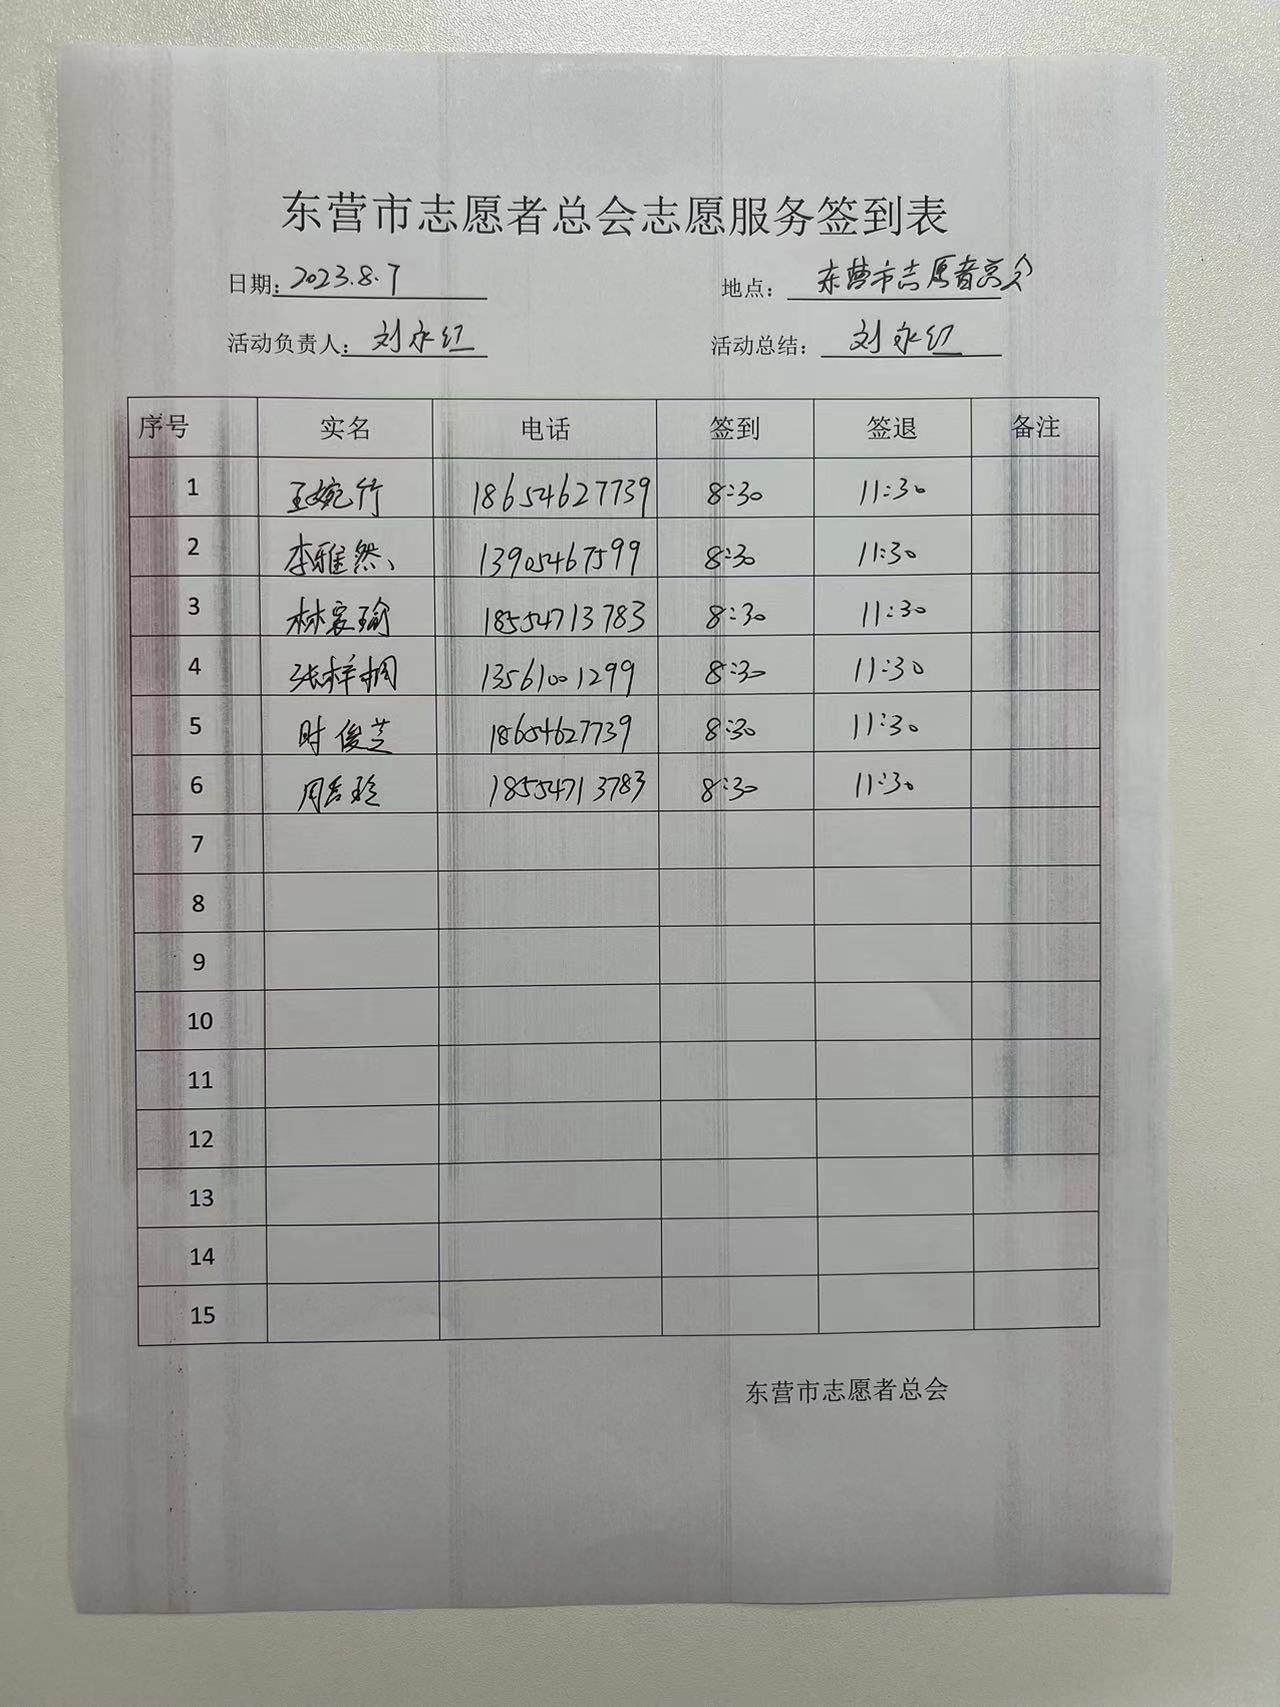 东营市志愿者总会志愿服务签到表
日期：2023.8.7 地点：东营市志愿者总会
活动负责人：刘永红 活动总结：刘永红
序号 实名 电话 签到 签退 备注
1 王婉竹 18654627739 8:30 11:30
2 李雅然、 13905467599 8:30 11:30
3 林家瑜 18554713783 8:30 11:30
4 张梓桐 13561001299 8:30 11:30
5 时俊芝 18654627739 8:30 11:30
6 周吉玲 18554713783 8:30 11:30
7
8
9
10
11
12
13
14
15
东营市志愿者总会